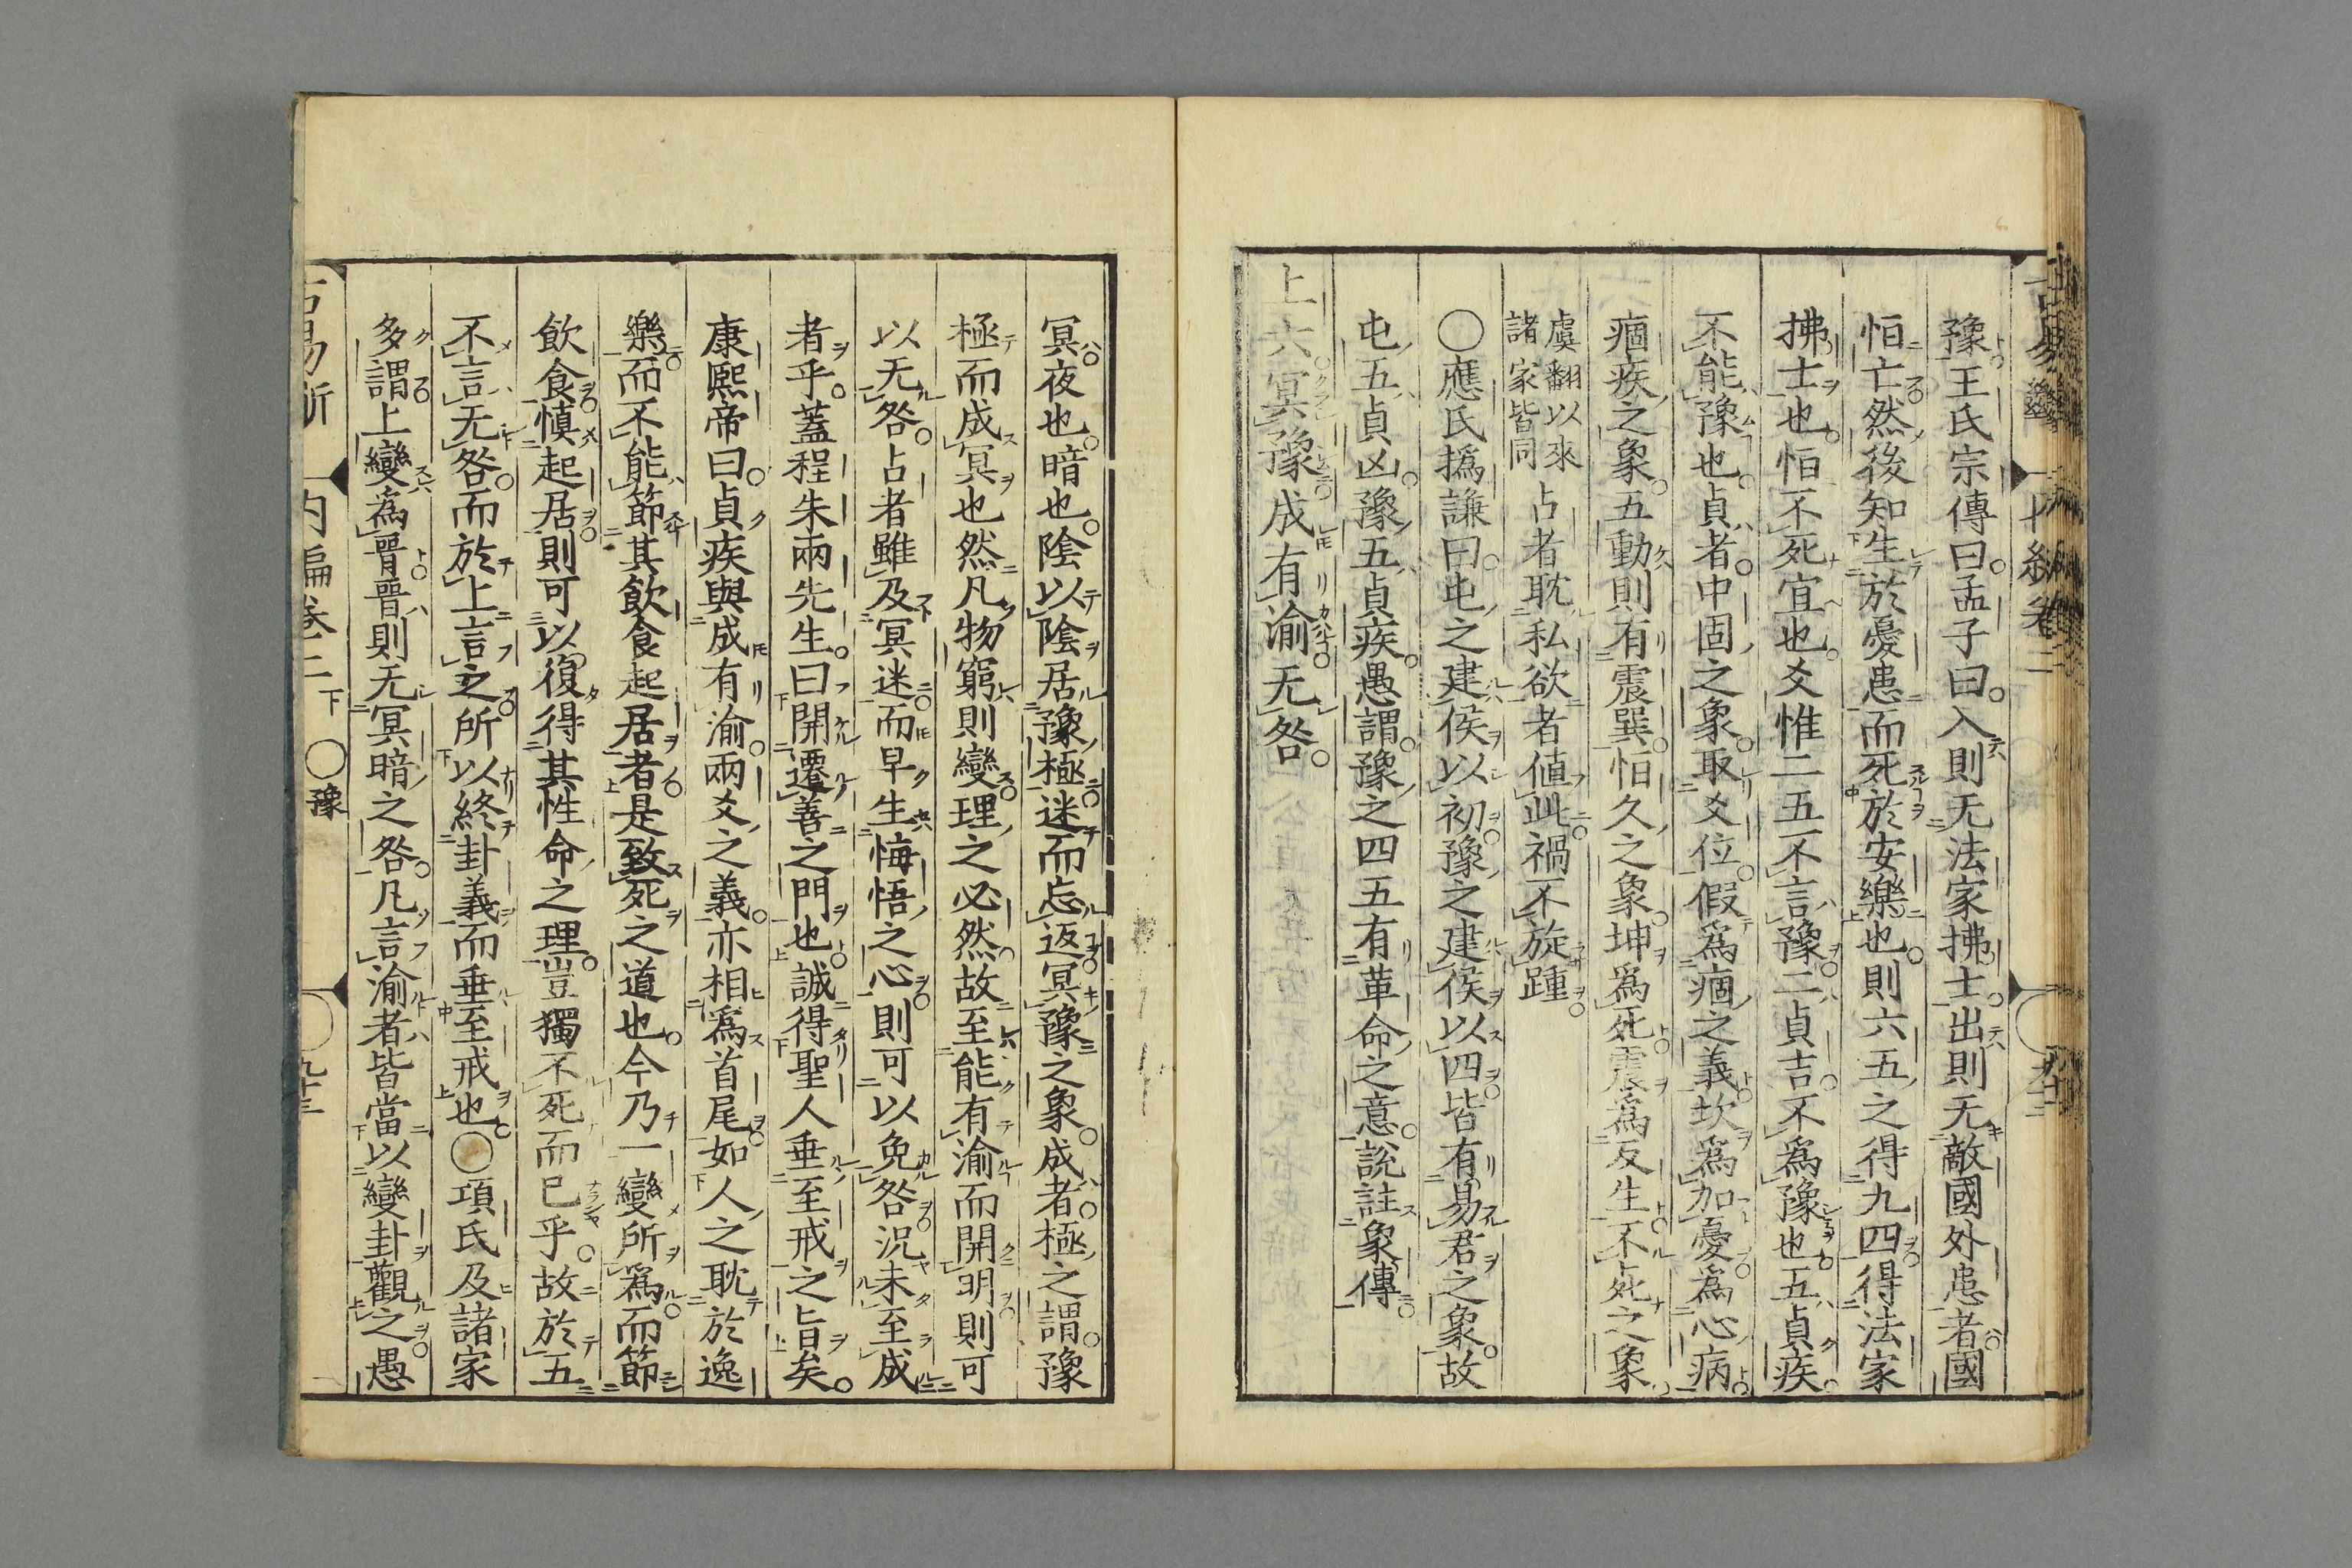 豫王氏宗傳曰孟子曰入則无法家拂士出則无敵國外患者國
恒亡然後知生於憂患而死於安樂也則六五之得九四得法家
拂士也恒不死宜也爻惟二五不言豫二貞吉不爲豫也五貞疾
不能豫也貞者中固之象取爻位假爲痼之義坎爲加憂爲心病
痼疾之象五動則有震巽恒久之象坤爲死震爲反生不死之象
虞翻以來諸家皆同占者耽私欲者値此禍不旋踵
○應氏撝謙曰屯之建侯以初豫之建侯以四皆有易君之象故
屯五貞凶豫五貞疾愚謂豫之四五有革命之意說註彖傳
上六冥豫成有渝无咎
冥夜也暗也陰以陰居豫極迷而忘返冥豫之象成者極之謂豫
極而成冥也然凡物窮則變理之必然故至能有渝而開明則可
以无咎占者雖及冥迷而早生悔悟之心則可以免咎況未至成
者乎蓋程朱兩先生曰開遷善之門也誠得聖人垂至戒之旨矣
康熙帝曰貞疾與成有渝兩爻之義亦相爲首尾如人之耽於逸
樂而不能節其飮食起居者是致死之道也今乃一變所爲而節
飮食愼起居則可以復得其性命之理豈獨不死而已乎故於五
不言无咎而於上言之所以終卦義而垂至戒也○項氏及諸家
多謂上變爲晉晉則无冥暗之咎凡言渝者皆當以變卦觀之愚
内編卷二下　○豫　九十三